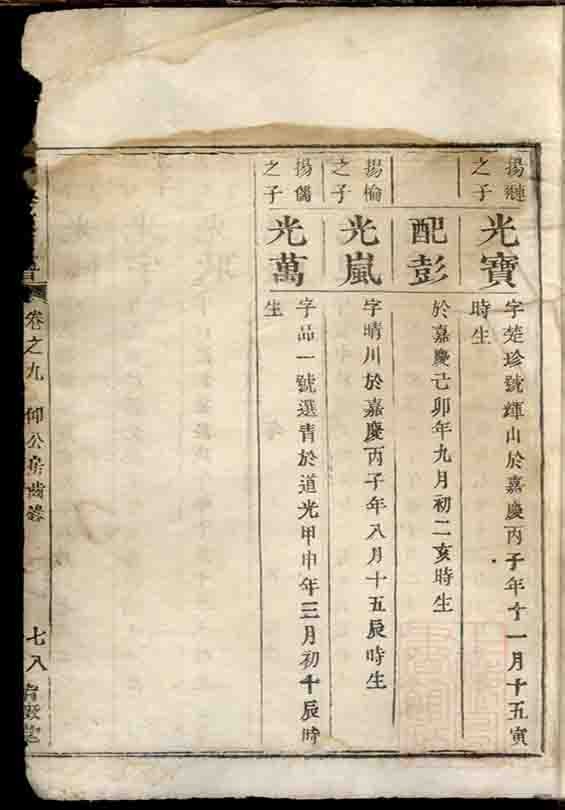 揚漣
之子
光寶
字楚珍號輝山於嘉慶丙子年十一月十五寅
時生
配彭
於嘉慶己卯年九月初二亥時生
揚倫
之子
光嵐
字晴川於嘉慶丙子年八月十五辰時生
揚儔
之子
光萬
字品一號選青於道光甲申年三月初十辰時
生
卷之九
仰公房齒錄
七八